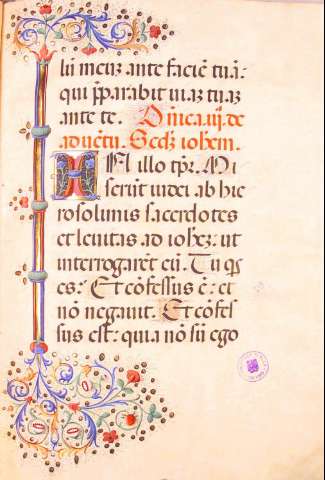 lū meuȝ ante faciē tuā:
qui ꝓparabit uiaȝ tuaȝ
ante te. Dñica .iiij. de
aduētu. Secdȝ iohem.
IN illo tp̄r. Mi
serūt iudei ab hie
rosolimis sacerdotes
et leuitas ad iohēȝ: ut
interrogarēt eū. Tu qs
es: Et cōfessus ē: et
nō negauit. Et cōfes
sus est: quia nō sū ego